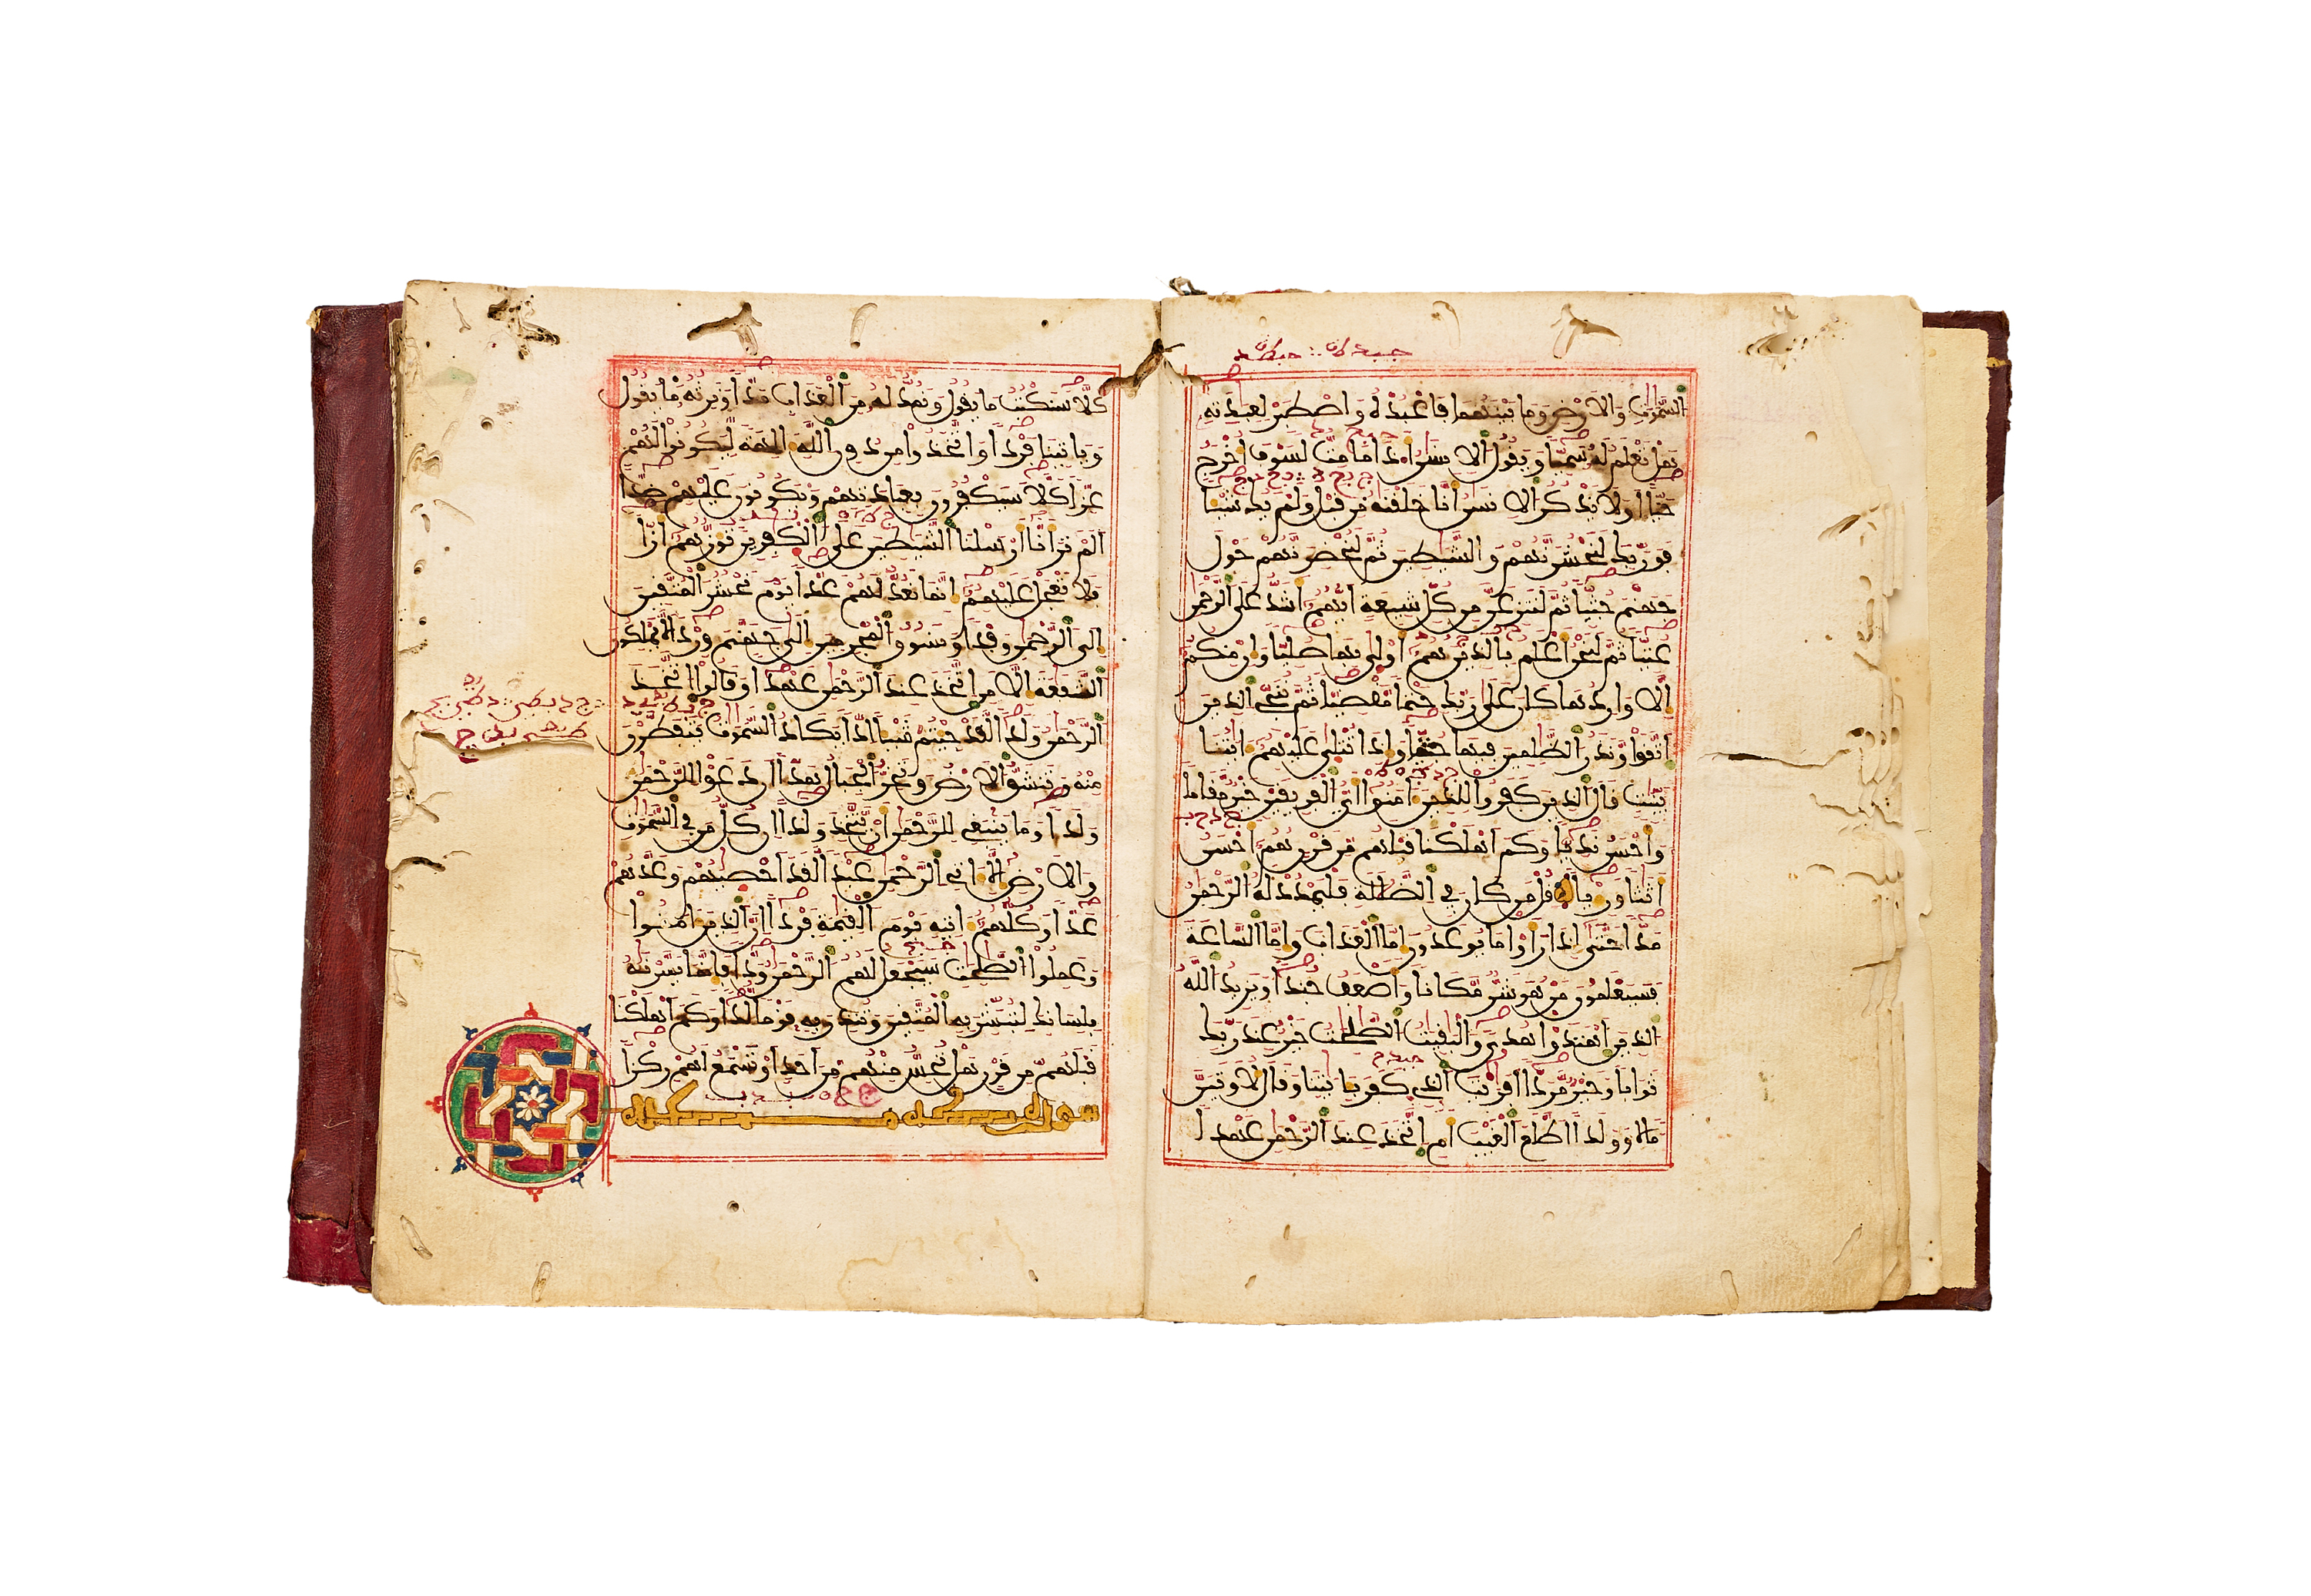 السموت والارض وما بينهما فاعبده واصطبر لعبدته
هل تعلم له سميا ويقول الانسن اذا ما مت لسوف اخرج
حيا اولا يذكر الانسن انا خلقنه من قبل ولم يك شيئا
فوربك لنحشرنهم والشيطين ثم لنحضرنهم حول
جهنم جثيا ثم لننزعن من كل شيعة ايهم اشد على الرحمن
عتيا ثم لنحن اعلم بالذين هم اولى بها صليا وان منكم
الا واردها كان على ربك حتما مقضيا ثم ننجي الذين
اتقوا ونذر الظلمين فيها جثيا واذا تتلى عليهم ايتنا
بينت قال الذين كفروا للذين امنوا اي الفريقين خير مقاما
واحسن نديا وكم اهلكنا قبلهم من قرن هم احسن
اثثا وريا قل من كان في الضللة فليمدد له الرحمن
مدا حتى اذا راوا ما يوعدون اما العذاب واما الساعة
فسيعلمون من هو شر مكانا واضعف جندا ويزيد الله
الذين اهتدوا هدى والبقيت الصلحت خير عند ربك
ثوابا وخير مردا افريت الذي كفر بايتنا وقال لاوتين
مالا وولدا اطلع الغيب ام اتخذ عند الرحمن عهدا
كلا سنكتب ما يقول ونمد له من العذاب مدا ونرثه ما يقول
وياتينا فردا واتخذوا من دون الله الهة ليكونوا لهم
عزا كلا سيكفرون بعبادتهم ويكونون عليهم ضدا
الم تر انا ارسلنا الشيطين على الكفرين تؤزهم ازا
فلا تعجل عليهم انما نعد لهم عدا يوم نحشر المتقين
الى الرحمن وفدا ونسوق المجرمين الى جهنم وردا لا يملكون
الشفعة الا من اتخذ عند الرحمن عهدا وقالوا اتخذ
الرحمن ولدا لقد جئتم شيئا ادا يكاد السموت يتفطرن
منه وتنشق الارض وتخر الجبال هدا ان دعوا للرحمن
ولدا وما ينبغي للرحمن ان يتخذ ولدا ان كل من في السموت
والارض الا اتي الرحمن عبدا لقد احصيهم وعدهم
عدا وكلهم اتيه يوم القيمة فردا ان الذين امنوا
وعملوا الصلحت سيجعل لهم الرحمن ودا فانما يسرنه
بلسانك لتبشر به المتقين وتنذر به قوما لدا وكم اهلكنا
قبلهم من قرن هل تحس منهم من احد او تسمع لهم ركزا